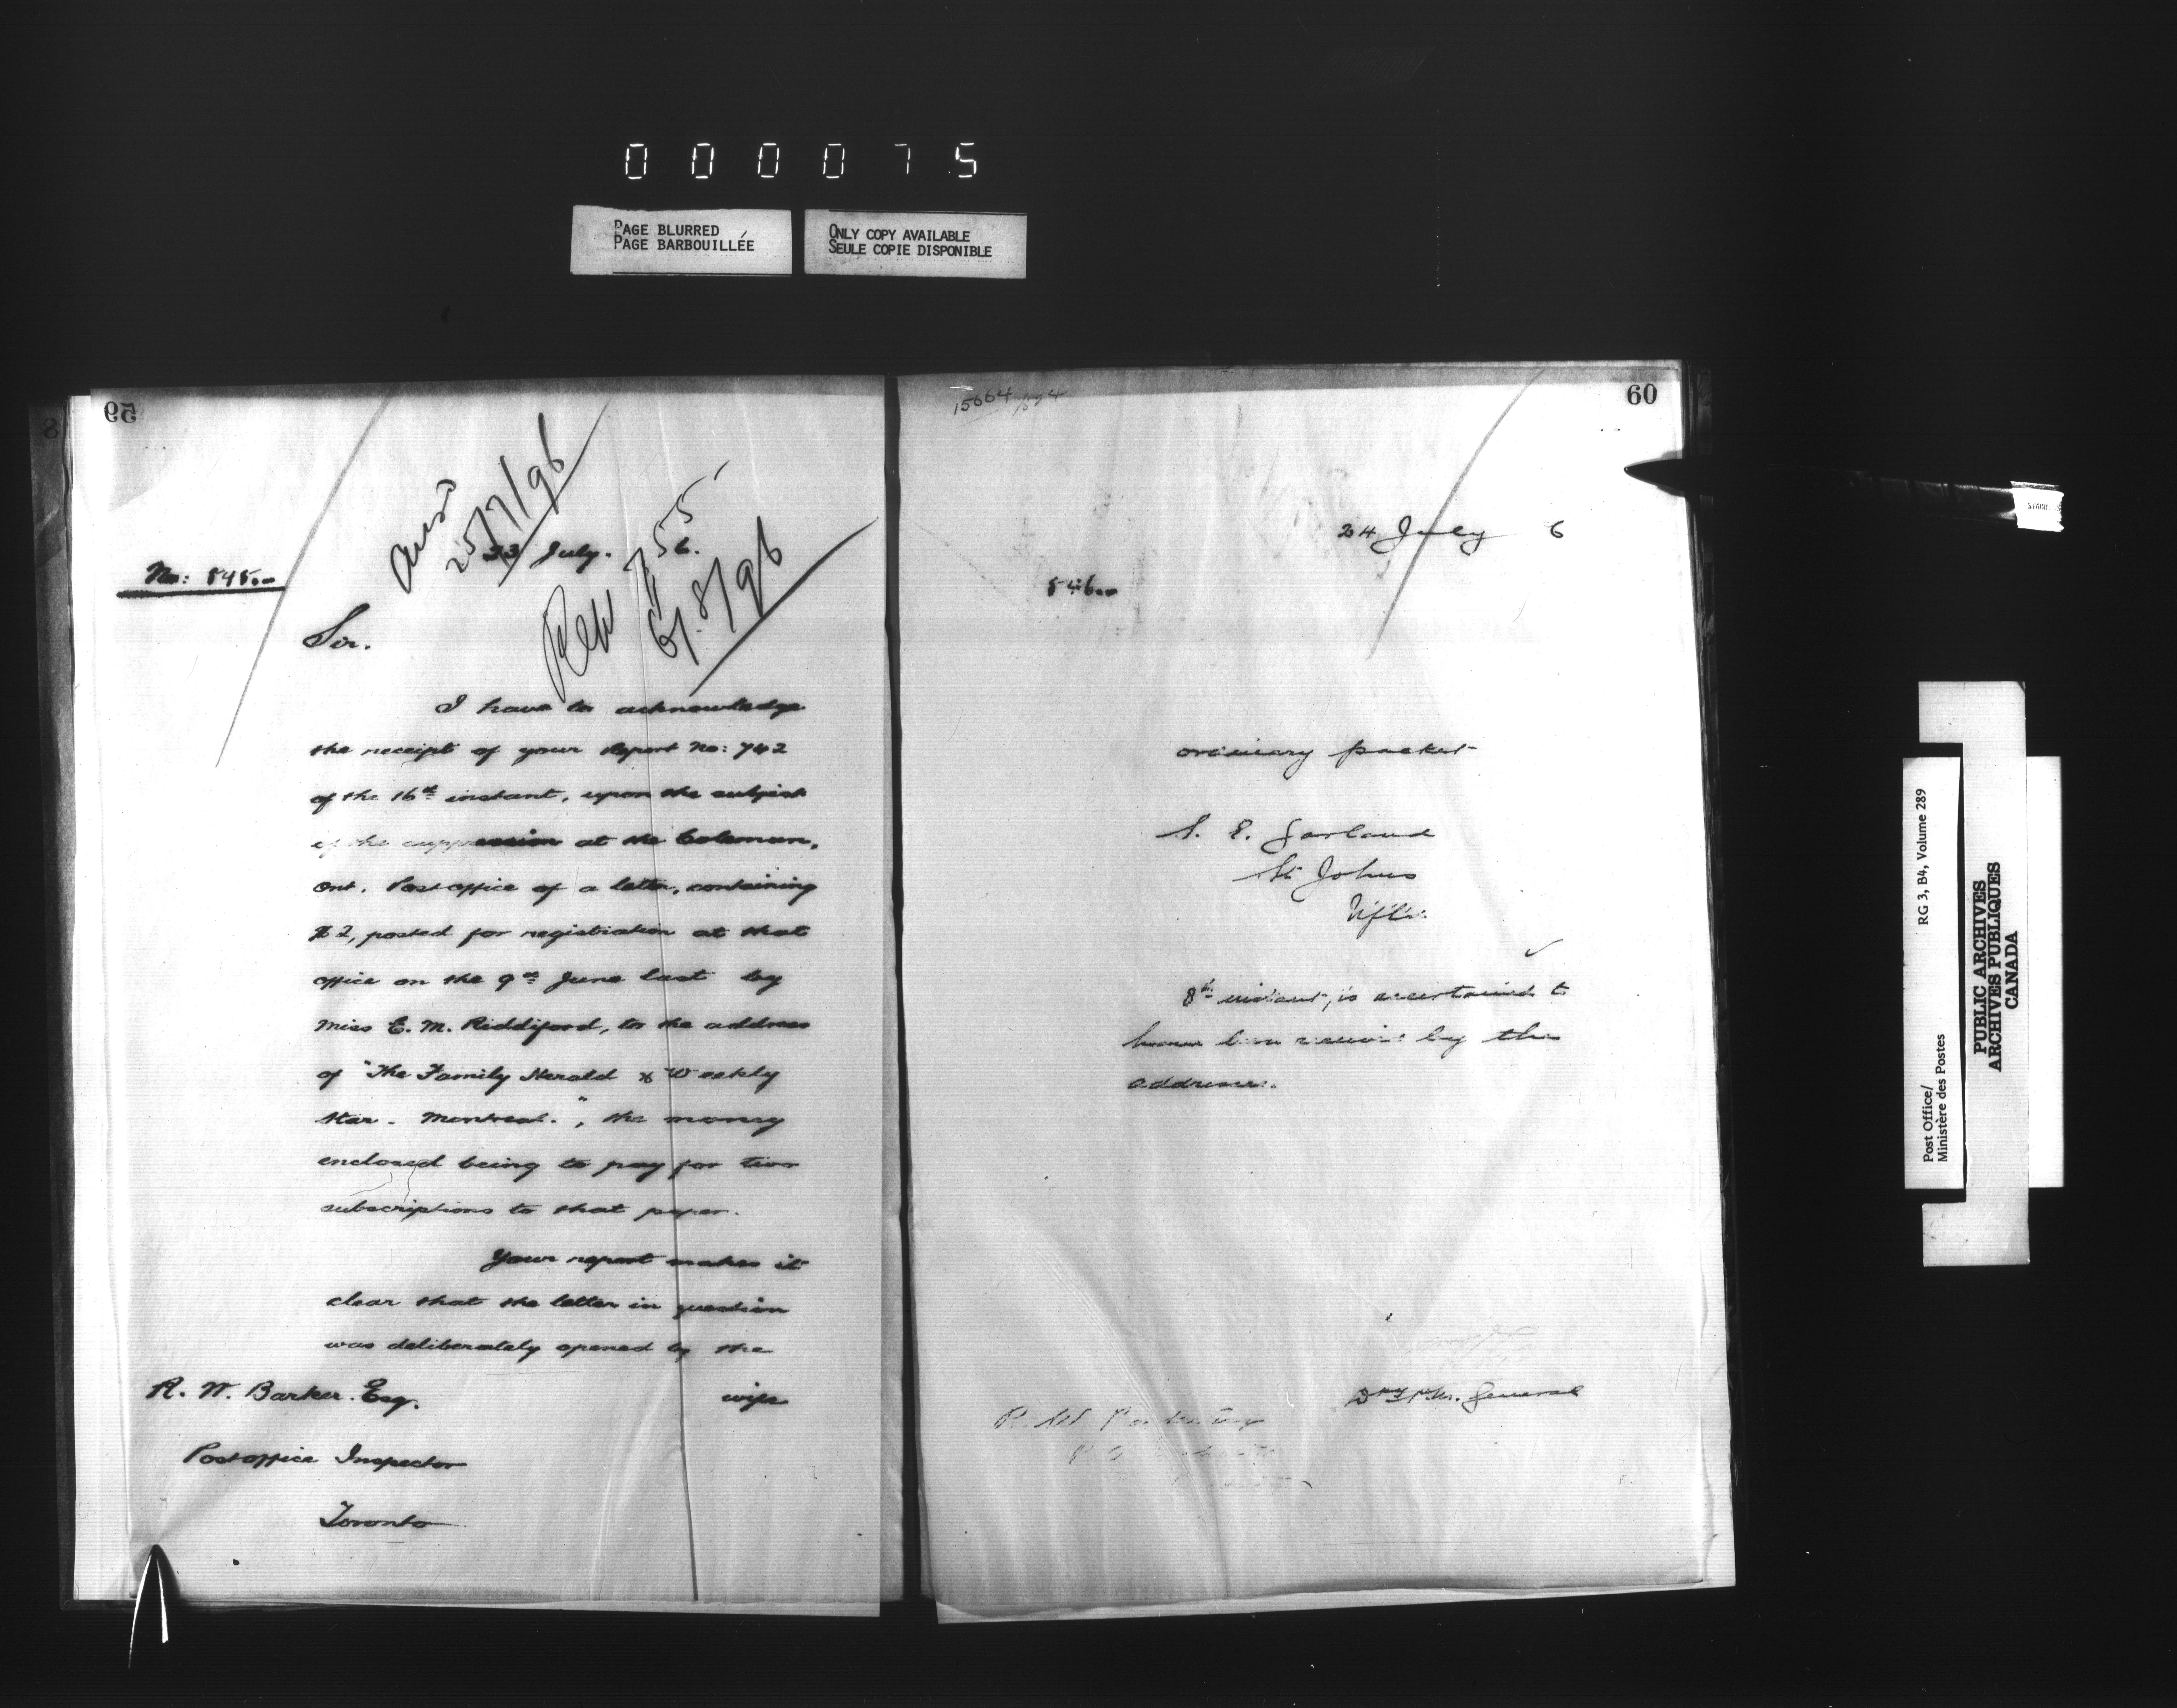 0 0 0 0 7 5
PAGE BLURRED
PAGE BARBOUILLÉE
ONLY COPY AVAILABLE
SEULE COPIE DISPONIBLE
59
Ansd
25/7/96
23 July. 6.
Rep 755
6/8/96
No: 545
Sir.
I have to acknowledge
the receipt of your Report No: 742
of the 16th instant, upon the subject
of the suppression at the Coleman,
Ont. Postoffice of a letter, containing
$2, posted for registration at that
office on the 9th June last by
Miss E. M. Riddiford, to the address
of "The Family Herald & Weekly
Star. Montreal.", the money
enclosed being to pay for two
subscriptions to that paper.
Your report makes it
clear that the letter in question
was deliberately opened by the
wife
R. W. Barker. Esq.
Postoffice Inspector
Toronto
60
15664
24 July 6
546
ordinary packet
S. E. Garland
St Johns
Nfld.
8th instant, is ascertained to
have been received by the
addressee.
Dpy P.M. General
RG 3, B4, Volume 289
Post Office/
Ministère des Postes
PUBLIC ARCHIVES
ARCHIVES PUBLIQUES
CANADA